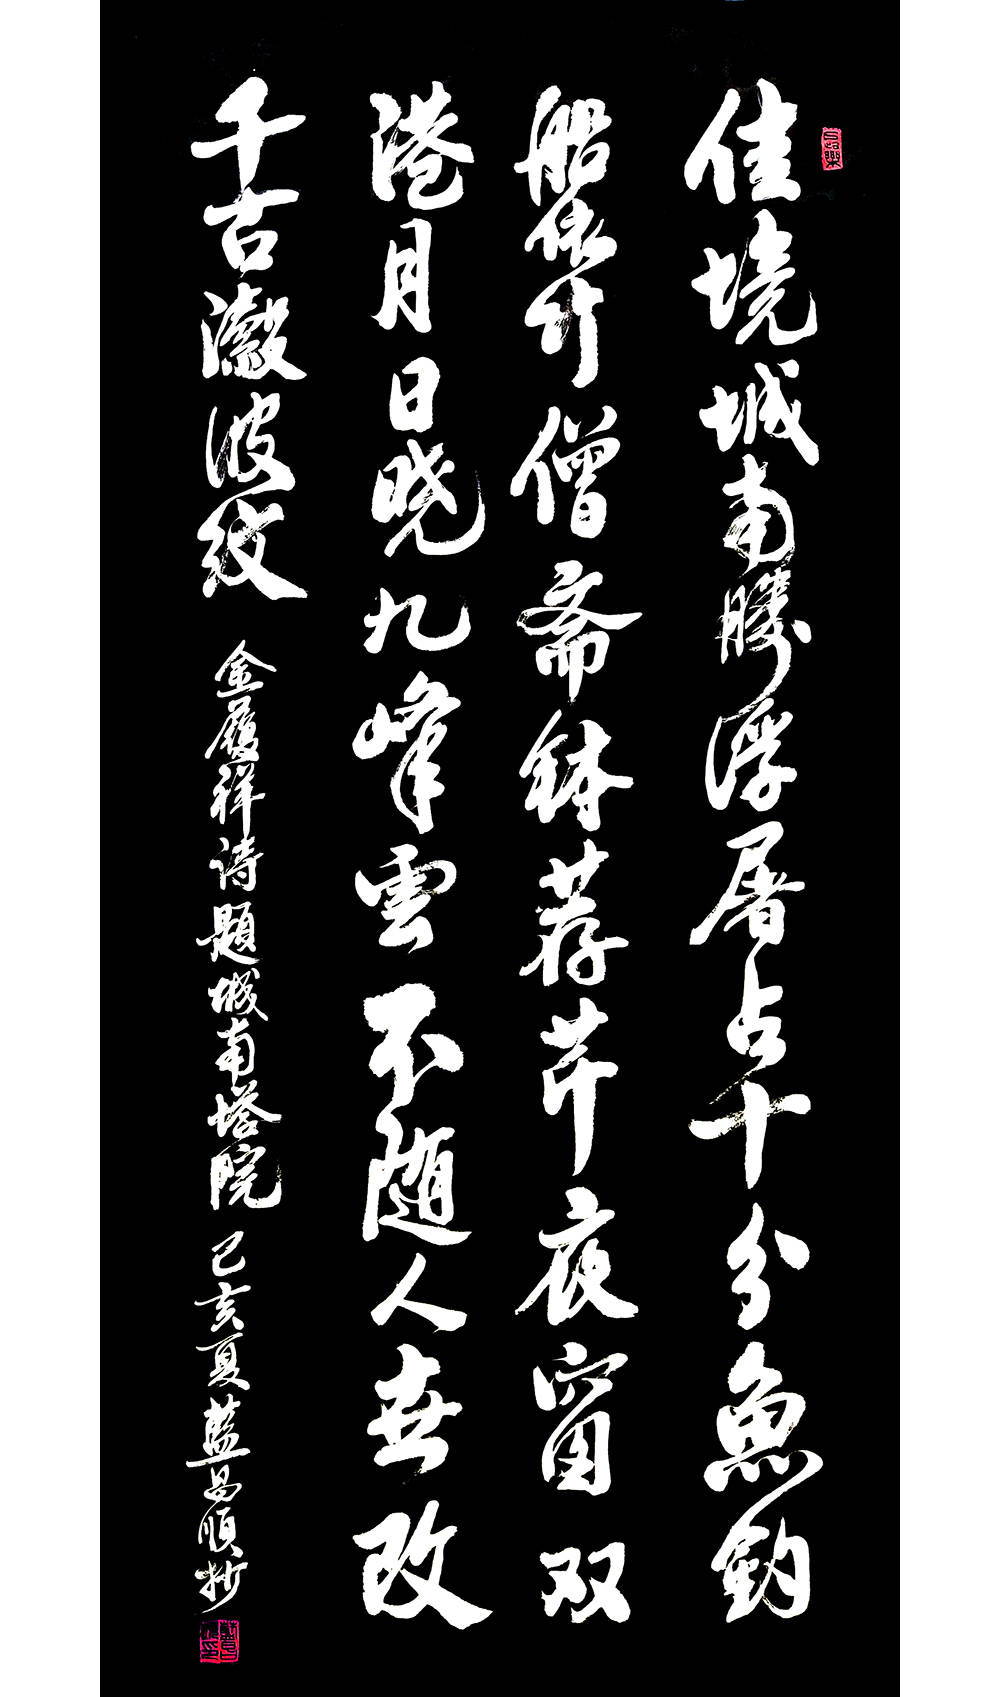 佳境城南勝浮屠占十分魚釣
船依竹僧斋鉢荐芹夜窗双
港月日晓九峰雲不随人世改
千古瀫波纹
金履祥诗題城南塔院 己亥夏藍昌順抄